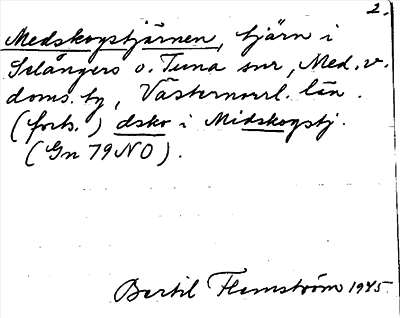 2.
Medskogstjärnen, tjärn i
Selångers o. Tuna snr, Med. v.
doms. tg, Västernorrl. län.
(forts.) dsko i Midskogstj.
(Gn 79 NO).
Bertil Flemström 1945.